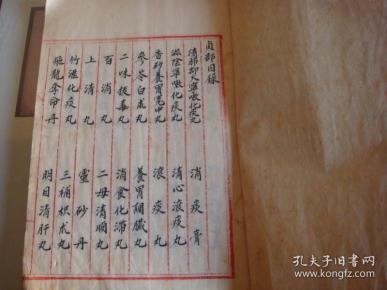 貞部目錄
清肺抑火寧嗽化痰丸
消痰膏
滋陰寧嗽化痰丸
清心滚痰丸
香砂養胃寬中丸
滚痰丸
參苓白朮丸
養胃調臟丸
二味拔毒丸
消食化滯丸
百消丸
二母清順丸
上清丸
靈砂丹
竹瀝化痰丸
三補枳朮丸
飛龍奪命丹
明目清肝丸
孔夫子旧書网
book.kongfz.com